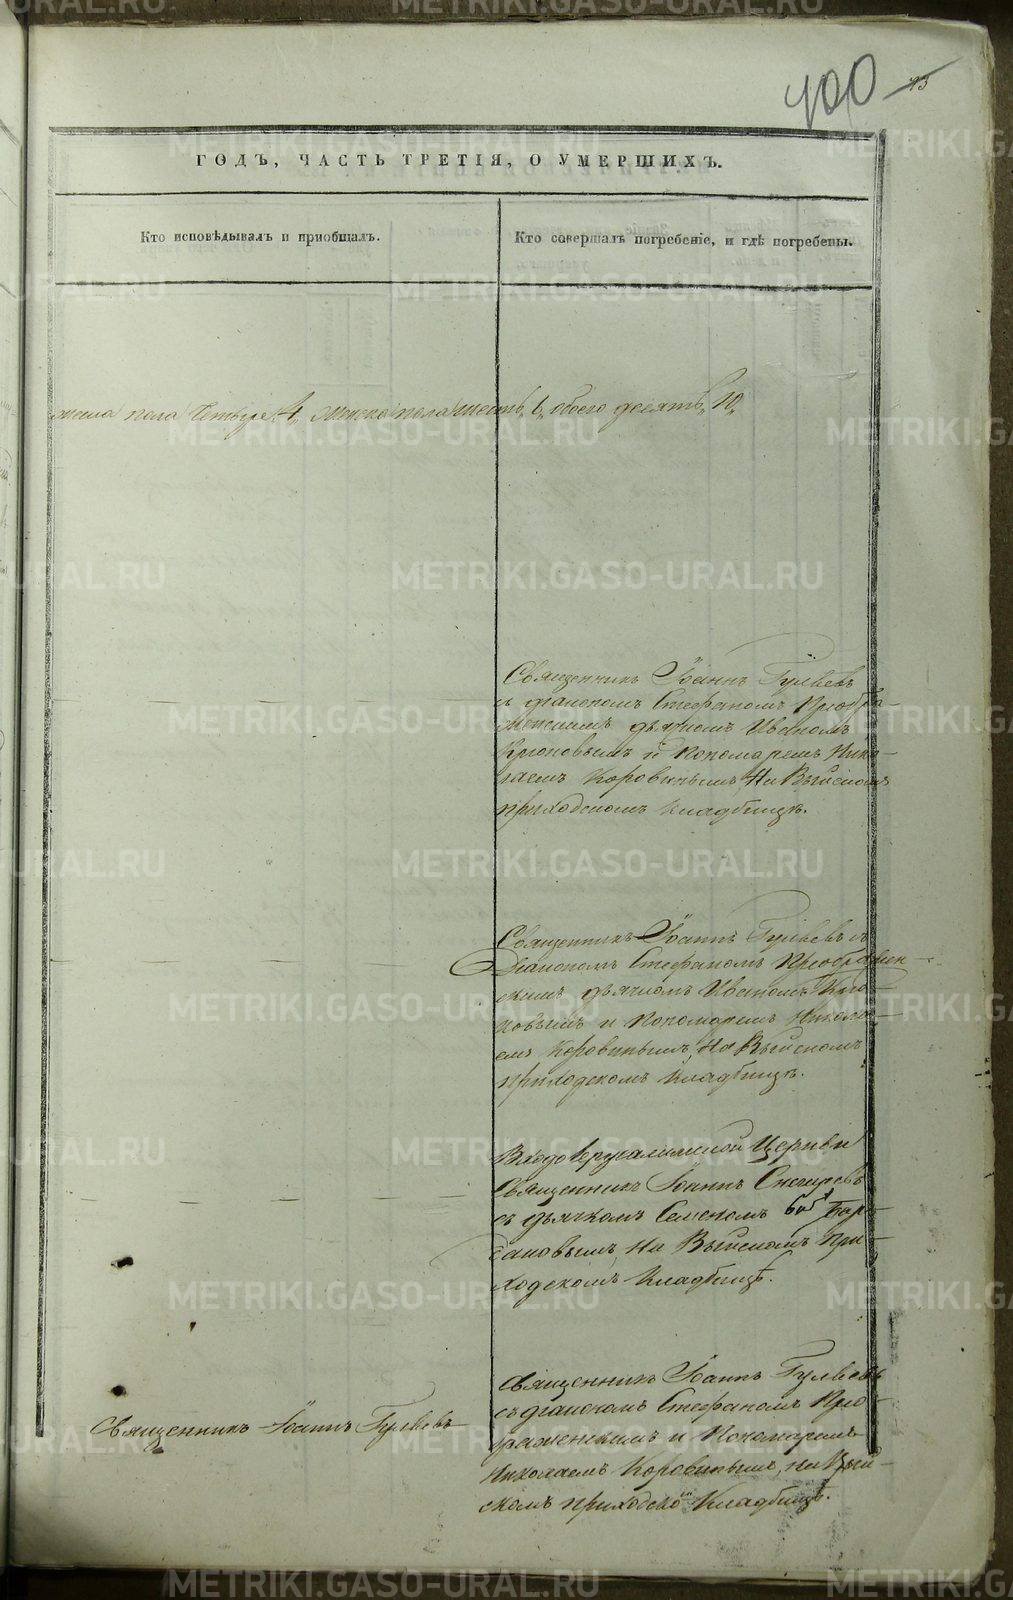 400 15
ГОДЪ, ЧАСТЬ ТРЕТІЯ, О УМЕРШИХЪ.
Кто исповѣдывалъ и пріобщалъ.
Кто совершалъ погребеніе, и гдѣ погребены.
пола Четыре, 4, Мужска пола шесть, 6, обоего десять, 10,
Священникъ Іоаннъ Гуляевъ
съ діакономъ Стефаномъ Преобра-
женскимъ дьячкомъ Иваномъ
Крюковымъ и Пономаремъ Нико-
лаемъ Коровинымъ, На Выйскомъ
приходскомъ кладбищѣ.
Священникъ Іоаннъ Гуляевъ съ
Діакономъ Стефаномъ Преображен-
скимъ дьячкомъ Иваномъ Крю-
ковымъ и Пономаремъ Никола-
емъ Коровинымъ, На Выйскомъ
приходскомъ кладбищѣ.
Входоіерусалимской Церкви
Священникъ Іоаннъ Снегиревъ
съ дьячкомъ Семеномъ
На Выйскомъ При-
ходскомъ Кладбищѣ.
Священникъ Іоаннъ Гуляевъ
Священникъ Іоаннъ Гуляевъ
съ діакономъ Стефаномъ Прео-
раженскимъ и Пономаремъ
Николаемъ Коровинымъ, на Вый-
скомъ приходско Кладбищѣ.
METRIKI.GASO-URAL.RU